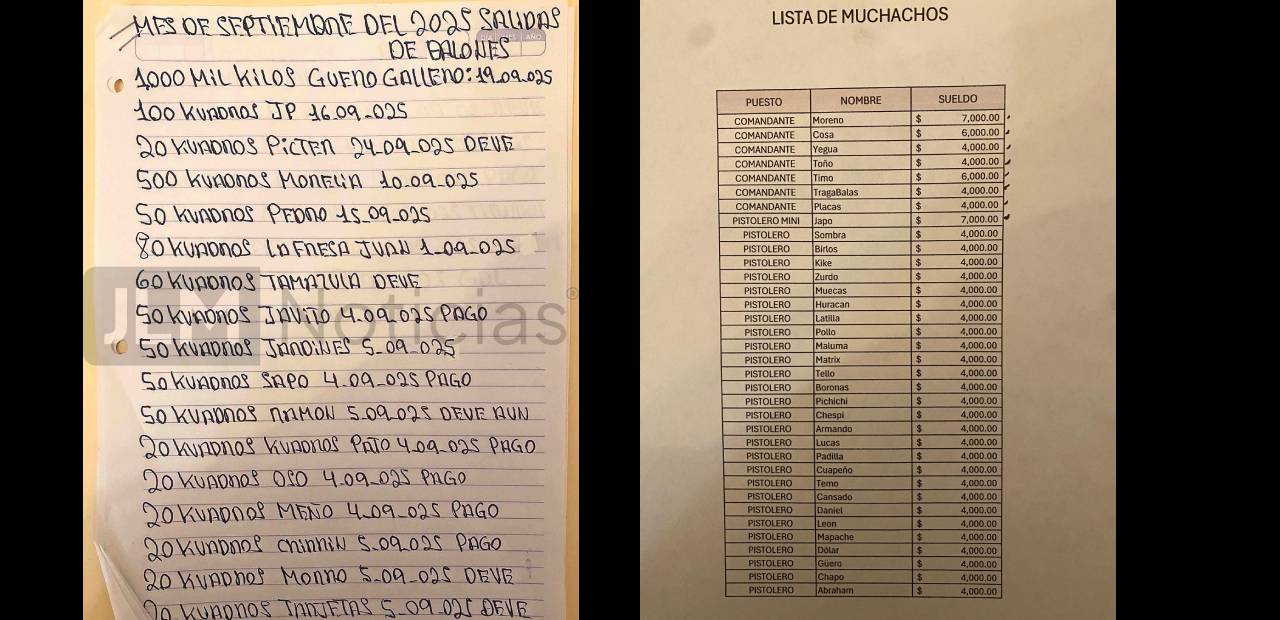 MES DE SEPTIEMBRE DEL 2025 SALIDAS
DE BALONES
1,000 MIL KILOS GUERO GALLERO: 19.09.025
100 KUADROS JP 16.09_025
20 KUADROS PICTER 24.09_025 DEVE
500 KUADROS MORELIA 10_09_025
50 KUADROS PEDRO 15_09_025
80 KUADROS LA FRESA JUAN 1_09_025
60 KUADROS TAMAZULA DEVE
50 KUADROS JAVITO 4.09.025 PAGO
50 KUADROS JARDINES 5_09_025
50 KUADROS SAPO 4_09_025 PAGO
50 KUADROS RAMON 5.09_025 DEVE AUN
20 KUADROS KUADROS PATO 4.09_025 PAGO
20 KUADROS OSO 4.09_025 PAGO
20 KUADROS MEÑO 4_09_025 PAGO
20 KUADROS CHIRRIN 5_09_025 PAGO
20 KUADROS MORRO 5_09_025 DEVE
20 KUADROS TARJETAS 5_09_025 DEVE
Noticias®
LISTA DE MUCHACHOS
PUESTO NOMBRE SUELDO
COMANDANTE Moreno $ 7,000.00
COMANDANTE Cosa $ 6,000.00
COMANDANTE Yegua $ 4,000.00
COMANDANTE Toño $ 4,000.00
COMANDANTE Timo $ 6,000.00
COMANDANTE TragaBalas $ 4,000.00
COMANDANTE Placas $ 4,000.00
PISTOLERO MINI Japo $ 7,000.00
PISTOLERO Sombra $ 4,000.00
PISTOLERO Birlos $ 4,000.00
PISTOLERO Kike $ 4,000.00
PISTOLERO Zurdo $ 4,000.00
PISTOLERO Muecas $ 4,000.00
PISTOLERO Huracan $ 4,000.00
PISTOLERO Latilla $ 4,000.00
PISTOLERO Pollo $ 4,000.00
PISTOLERO Maluma $ 4,000.00
PISTOLERO Matrix $ 4,000.00
PISTOLERO Tello $ 4,000.00
PISTOLERO Boronas $ 4,000.00
PISTOLERO Pichichi $ 4,000.00
PISTOLERO Chespi $ 4,000.00
PISTOLERO Armando $ 4,000.00
PISTOLERO Lucas $ 4,000.00
PISTOLERO Padilla $ 4,000.00
PISTOLERO Cuapeño $ 4,000.00
PISTOLERO Temo $ 4,000.00
PISTOLERO Cansado $ 4,000.00
PISTOLERO Daniel $ 4,000.00
PISTOLERO Leon $ 4,000.00
PISTOLERO Mapache $ 4,000.00
PISTOLERO Dólar $ 4,000.00
PISTOLERO Güero $ 4,000.00
PISTOLERO Chapo $ 4,000.00
PISTOLERO Abraham $ 4,000.00